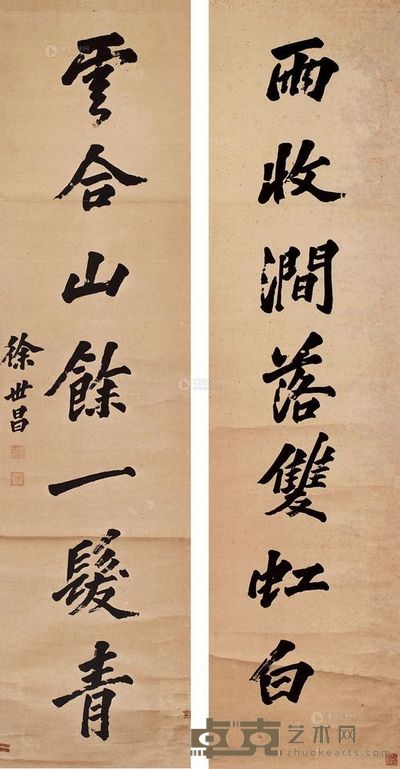 雨收澗落雙虹白
雲合山餘一髮青
徐世昌
卓克艺术网
zhuokearts.com